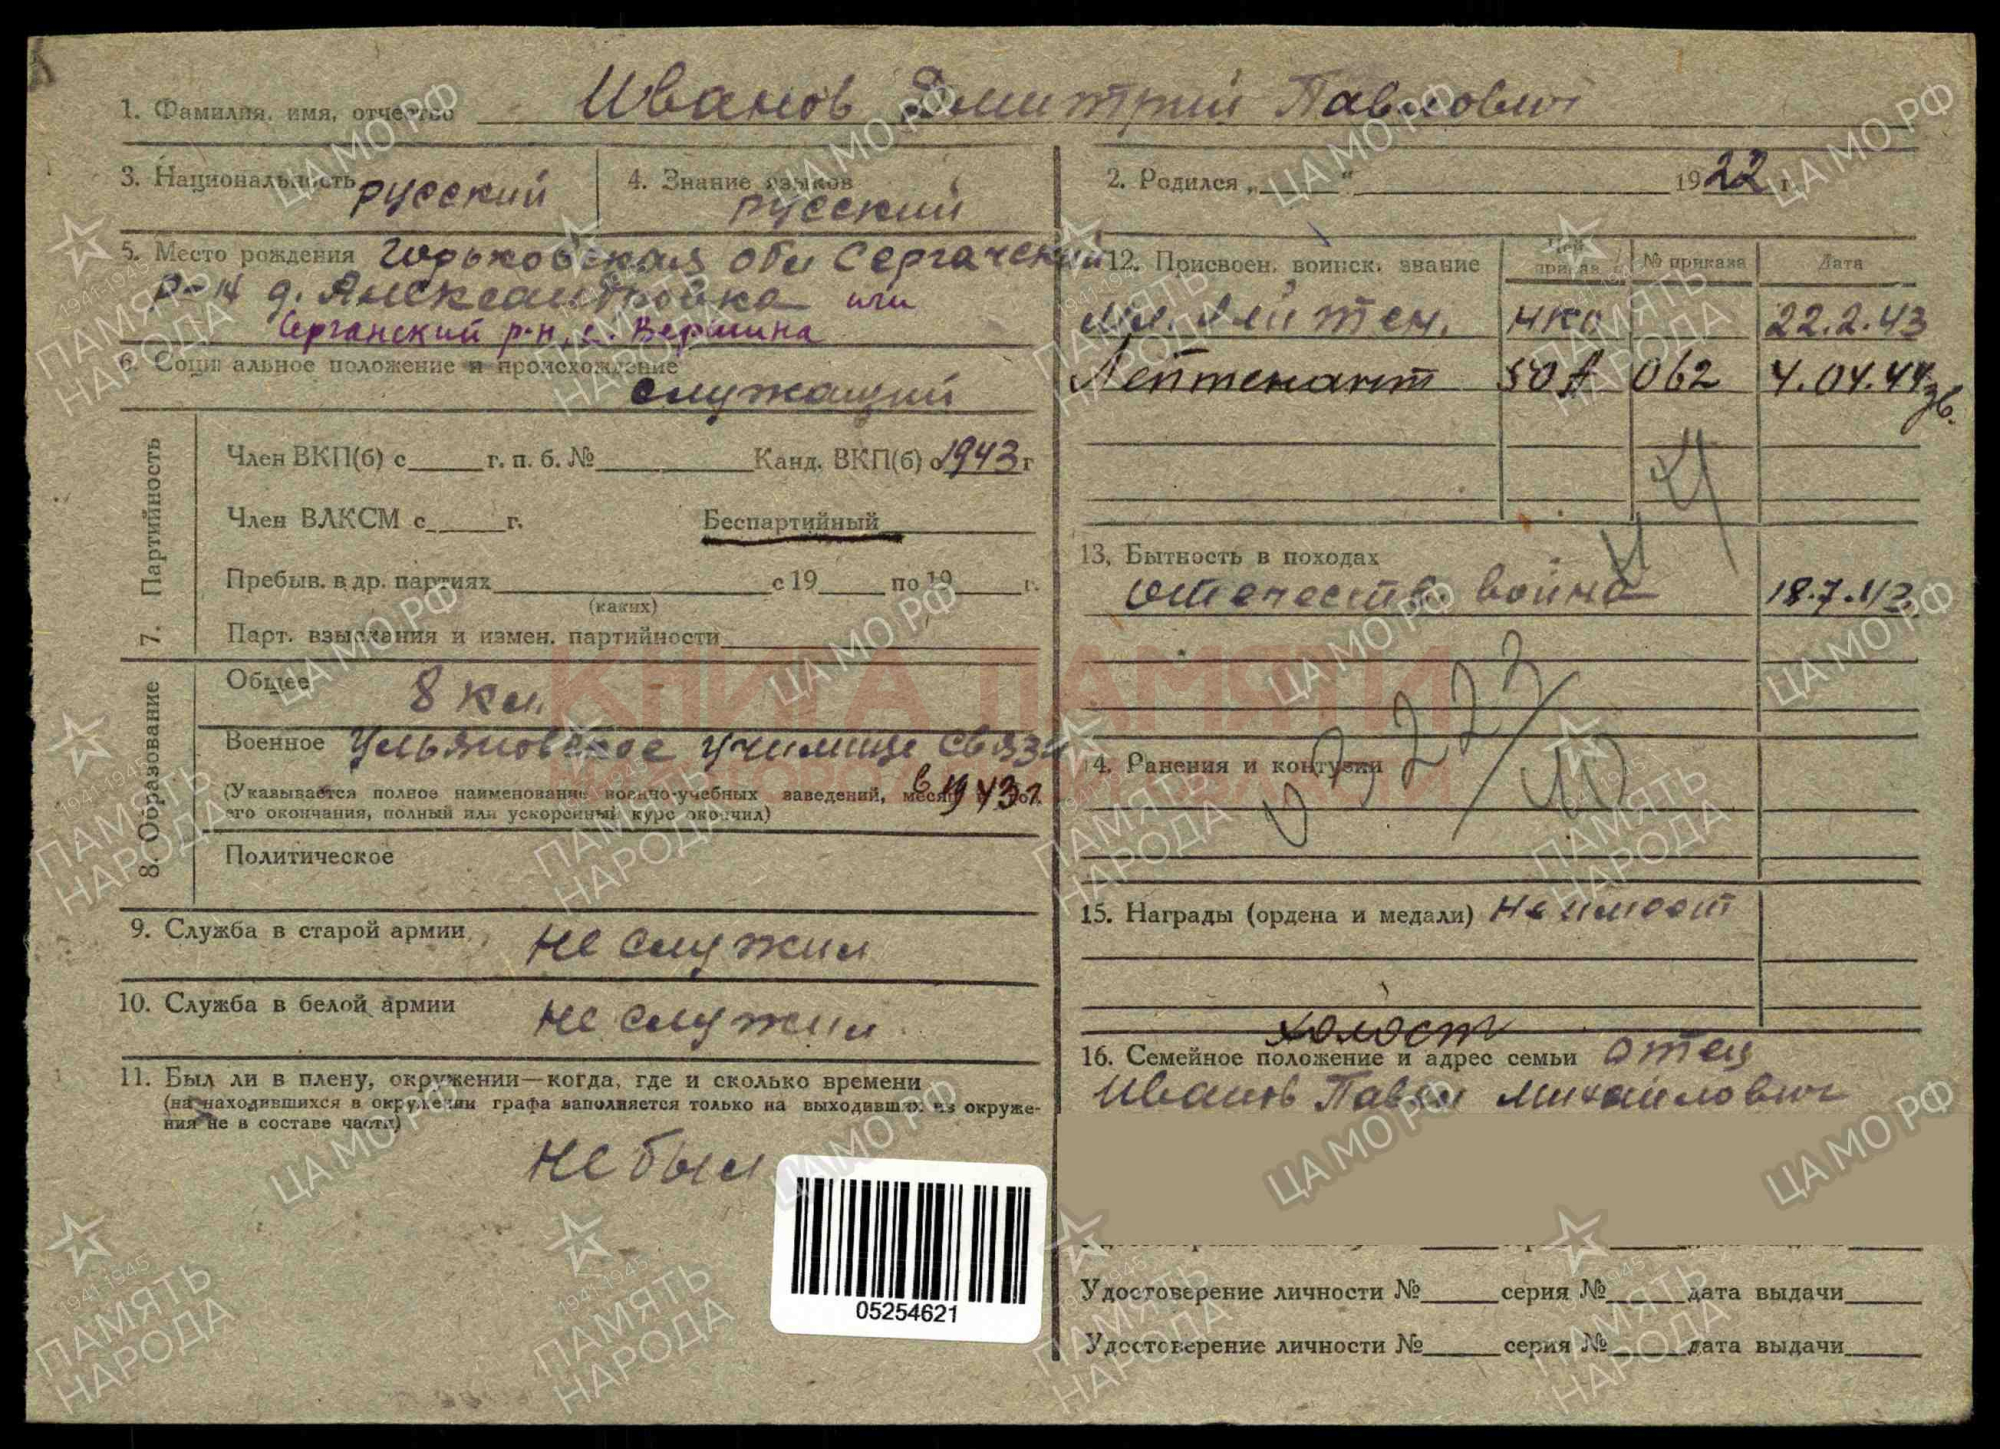 1. Фамилия, имя, отчество Иванов Дмитрий Павлович
3. Национальность русский
4. Знание языков русский
2. Родился „ “ 1922 г.
5. Место рождения Горьковская обл Сергачский
р-н д. Александровка или
Серганский р-н, с. Вершина
6. Социальное положение и происхождение
служащий
7. Партийность
Член ВКП(б) с г. п. б. № Канд. ВКП(б) с 1943 г
Член ВЛКСМ с г. Беспартийный
Пребыв. в др. партиях с 19 по 19 г.
(каких)
Парт. взыскания и измен. партийности
8. Образование
Общее 8 кл.
Военное Ульяновское училище связи
в 1943 г.
(Указывается полное наименование военно-учебных заведений, месяц
его окончания, полный или ускоренный курс окончил)
Политическое
9. Служба в старой армии не служил
10. Служба в белой армии не служил
11. Был ли в плену, окружении—когда, где и сколько времени
(на находившихся в окружении графа заполняется только на выходивших из окруже-
ния не в составе части)
не был
05254621
12. Присвоен. воинск. звание Чей приказ № приказа Дата
мл. лейтен. НКО 22.2.43
Лейтенант 50 А 062 4.04.44
13. Бытность в походах
отечеств. война 18.7.43
14. Ранения и контузии
15. Награды (ордена и медали) не имеет
холост
16. Семейное положение и адрес семьи отец
Иванов Павел Михайлович
Удостоверение личности № серия № дата выдачи
Удостоверение личности № серия № дата выдачи
КНИГА ПАМЯТИ
ЦА МО РФ
1941-1945
ПАМЯТЬ
НАРОДА